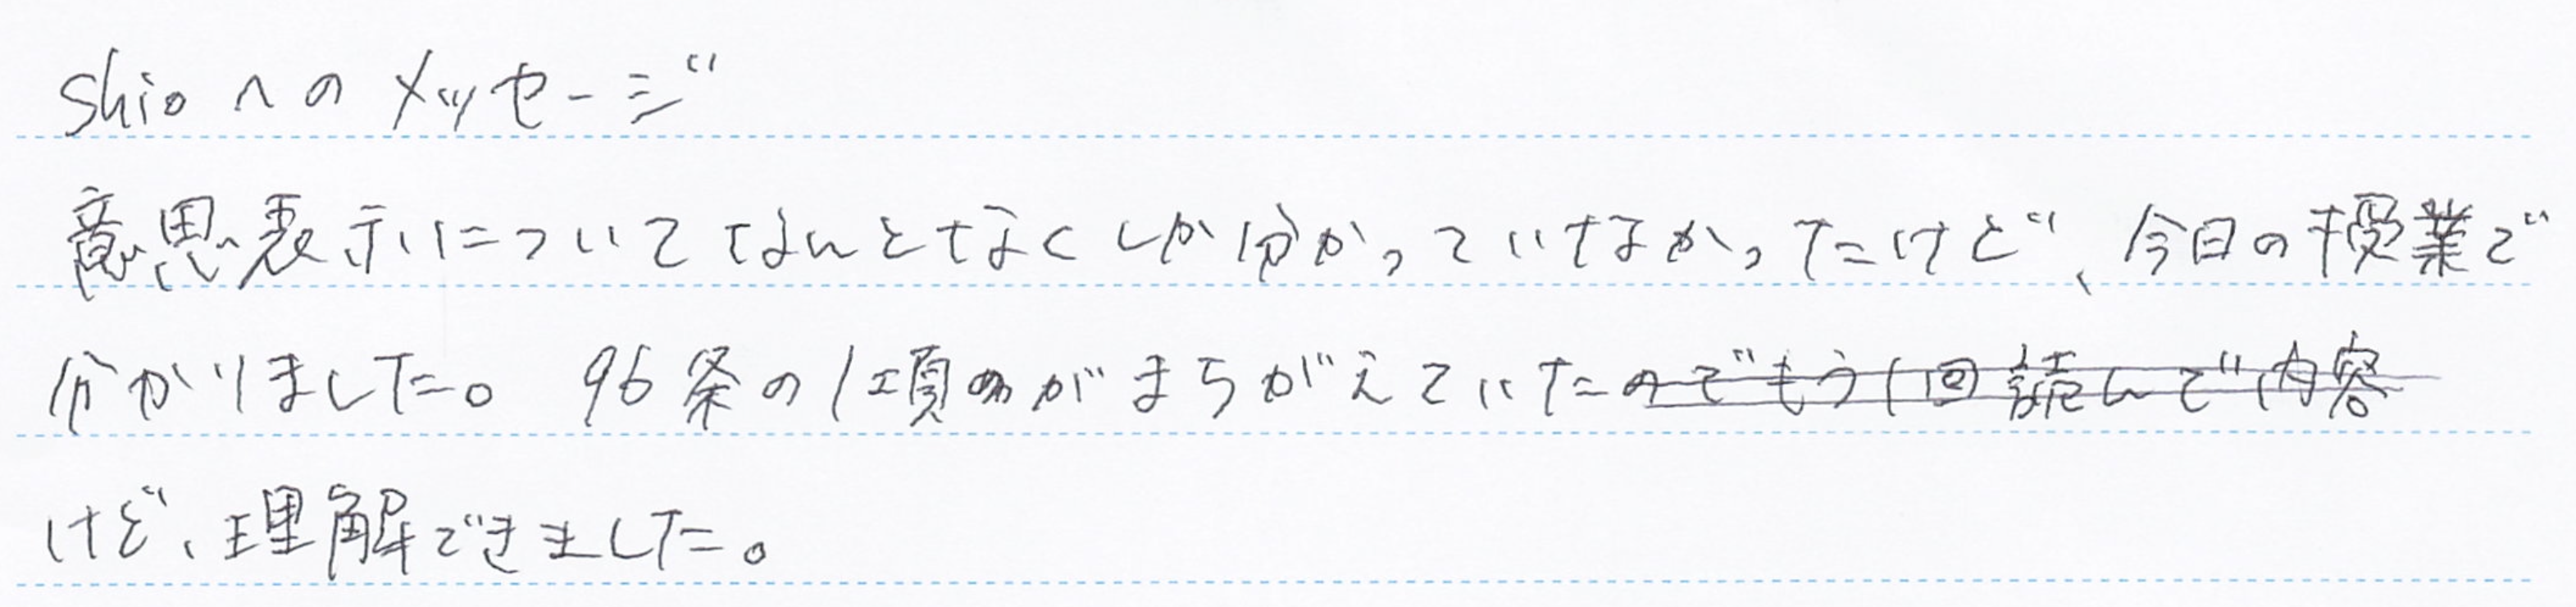 shioへのメッセージ
意思表示についてなんとなくしか分かっていなかったけど、今日の授業で
分かりました。96条の1項のがまちがえていたのでもう1回読んで内容
けど、理解できました。